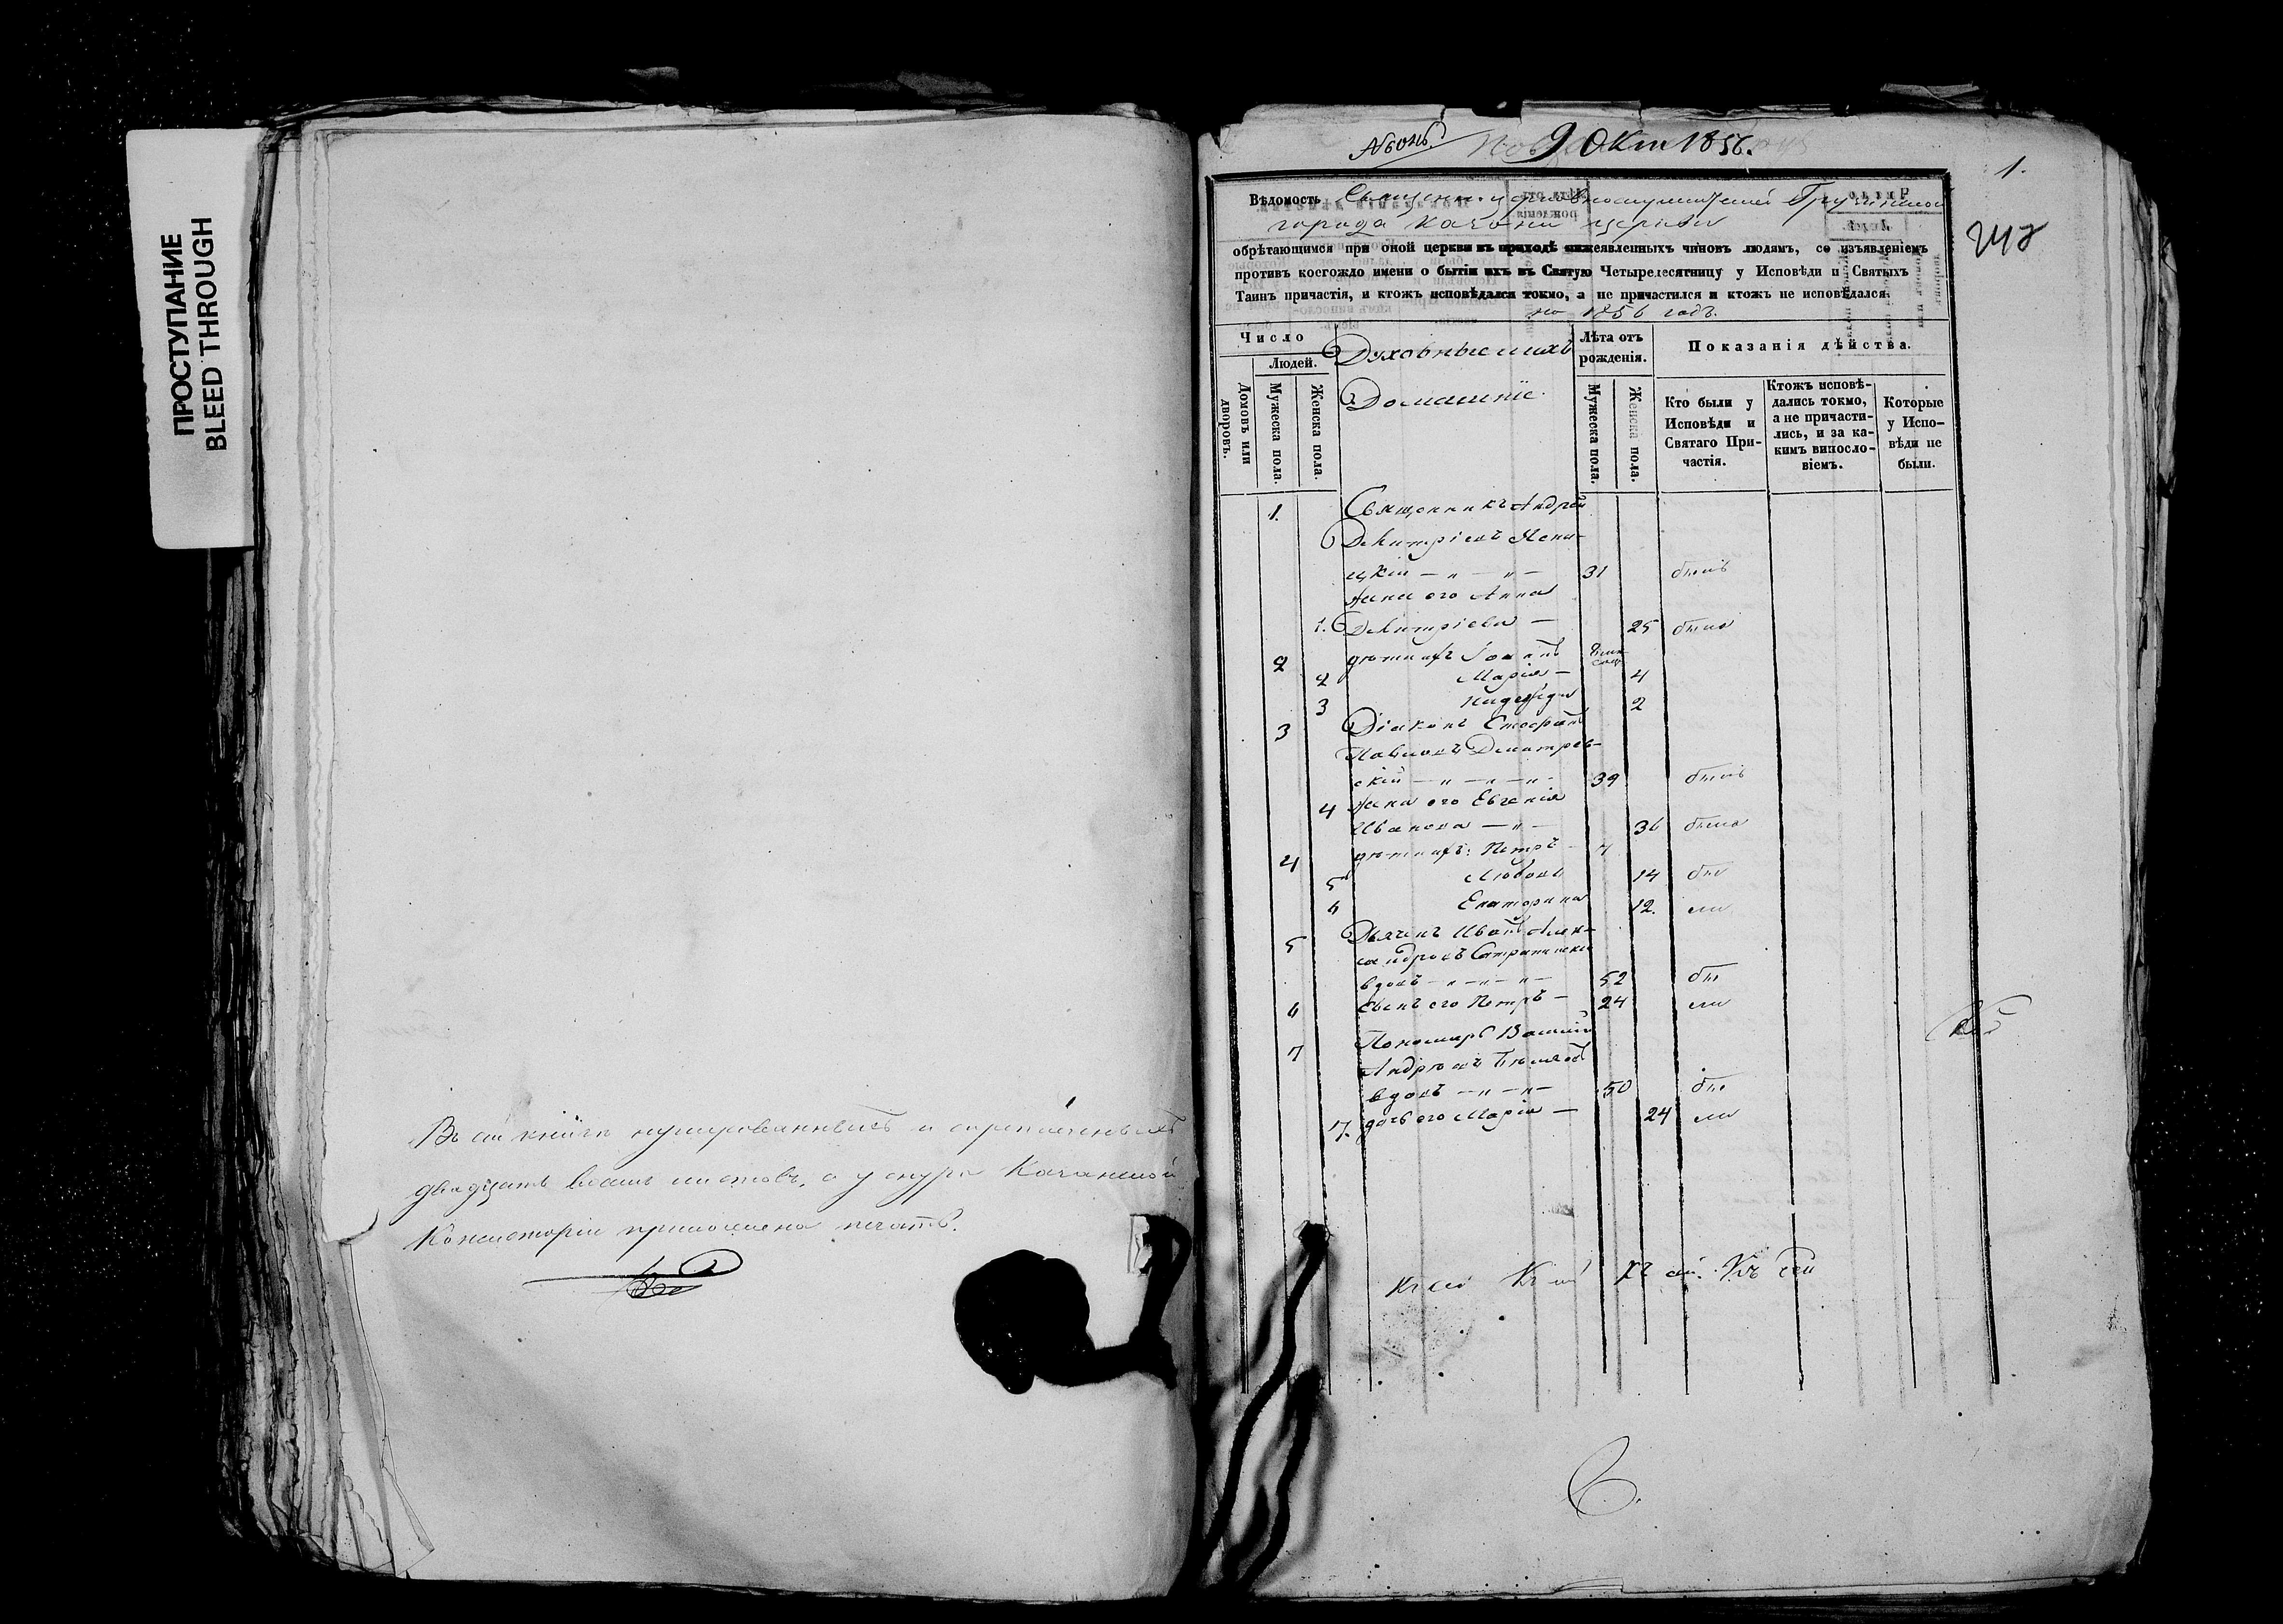 ПРОСТУПАНИЕ
BLEED THROUGH
Въ сей книгѣ нумерованныхъ и скрѣпленныхъ
двадцать восемь листовъ, а у шнура Казанской
Консисторіи приложена печать.
9 Окт 1856.
1.
Вѣдомость Священно-церковнослужителей Грузинской
города Казани церкви
обрѣтающимся при оной церкви въ приходѣ нижеявленныхъ чиновъ людямъ, со изъявленіемъ
противъ коегождо имени о бытіи ихъ въ Святую Четыредесятницу у Исповѣди и Святыхъ
Таинъ причастія, и ктожъ исповѣдался токмо, а не причастился и ктожъ не исповѣдался.
на 1856 годъ.
Число
Людей.
Домовъ или дворовъ.
Мужеска пола.
Женска пола.
Духовные и ихъ
Домашніе.
Лѣта отъ рожденія.
Мужеска пола.
Женска пола.
Показанія дѣйства.
Кто были у Исповѣди и Святаго Причастія.
Ктожъ исповѣ-
дались токмо,
а не причасти-
лись, и за ка-
кимъ винослo-
віемъ.
Которые
у Испо-
вѣди не
были.
1. Священникъ Андрей
Димитріевъ
цкій — „ — „ — 31 былъ
Жена его Анна
1. Димитріева — 25 была
2 дѣти ихъ: Іоаннъ
2 Марія — 4
3 Надежда 2
3 Діаконъ
Павловъ Димитрев-
скій — „ — „ — „ — 39 былъ
4 Жена его Евгенія
Иванова — „ — 36 была
4 дѣти ихъ: Петръ — 7
5 Любовь 14 бы
6 Екатерина 12. ли
5 Дьячекъ Иванъ Алек-
сандровъ
вдовъ — „ — „ — „ — 52 бы
6 Сынъ его Петръ — 24 ли
7 Пономарь Василій
Андреевъ
вдовъ — „ — „ — 50 бы
7. дочь его Марія — 24 ли
Къ сей Къ сей Къ сей. Къ сей